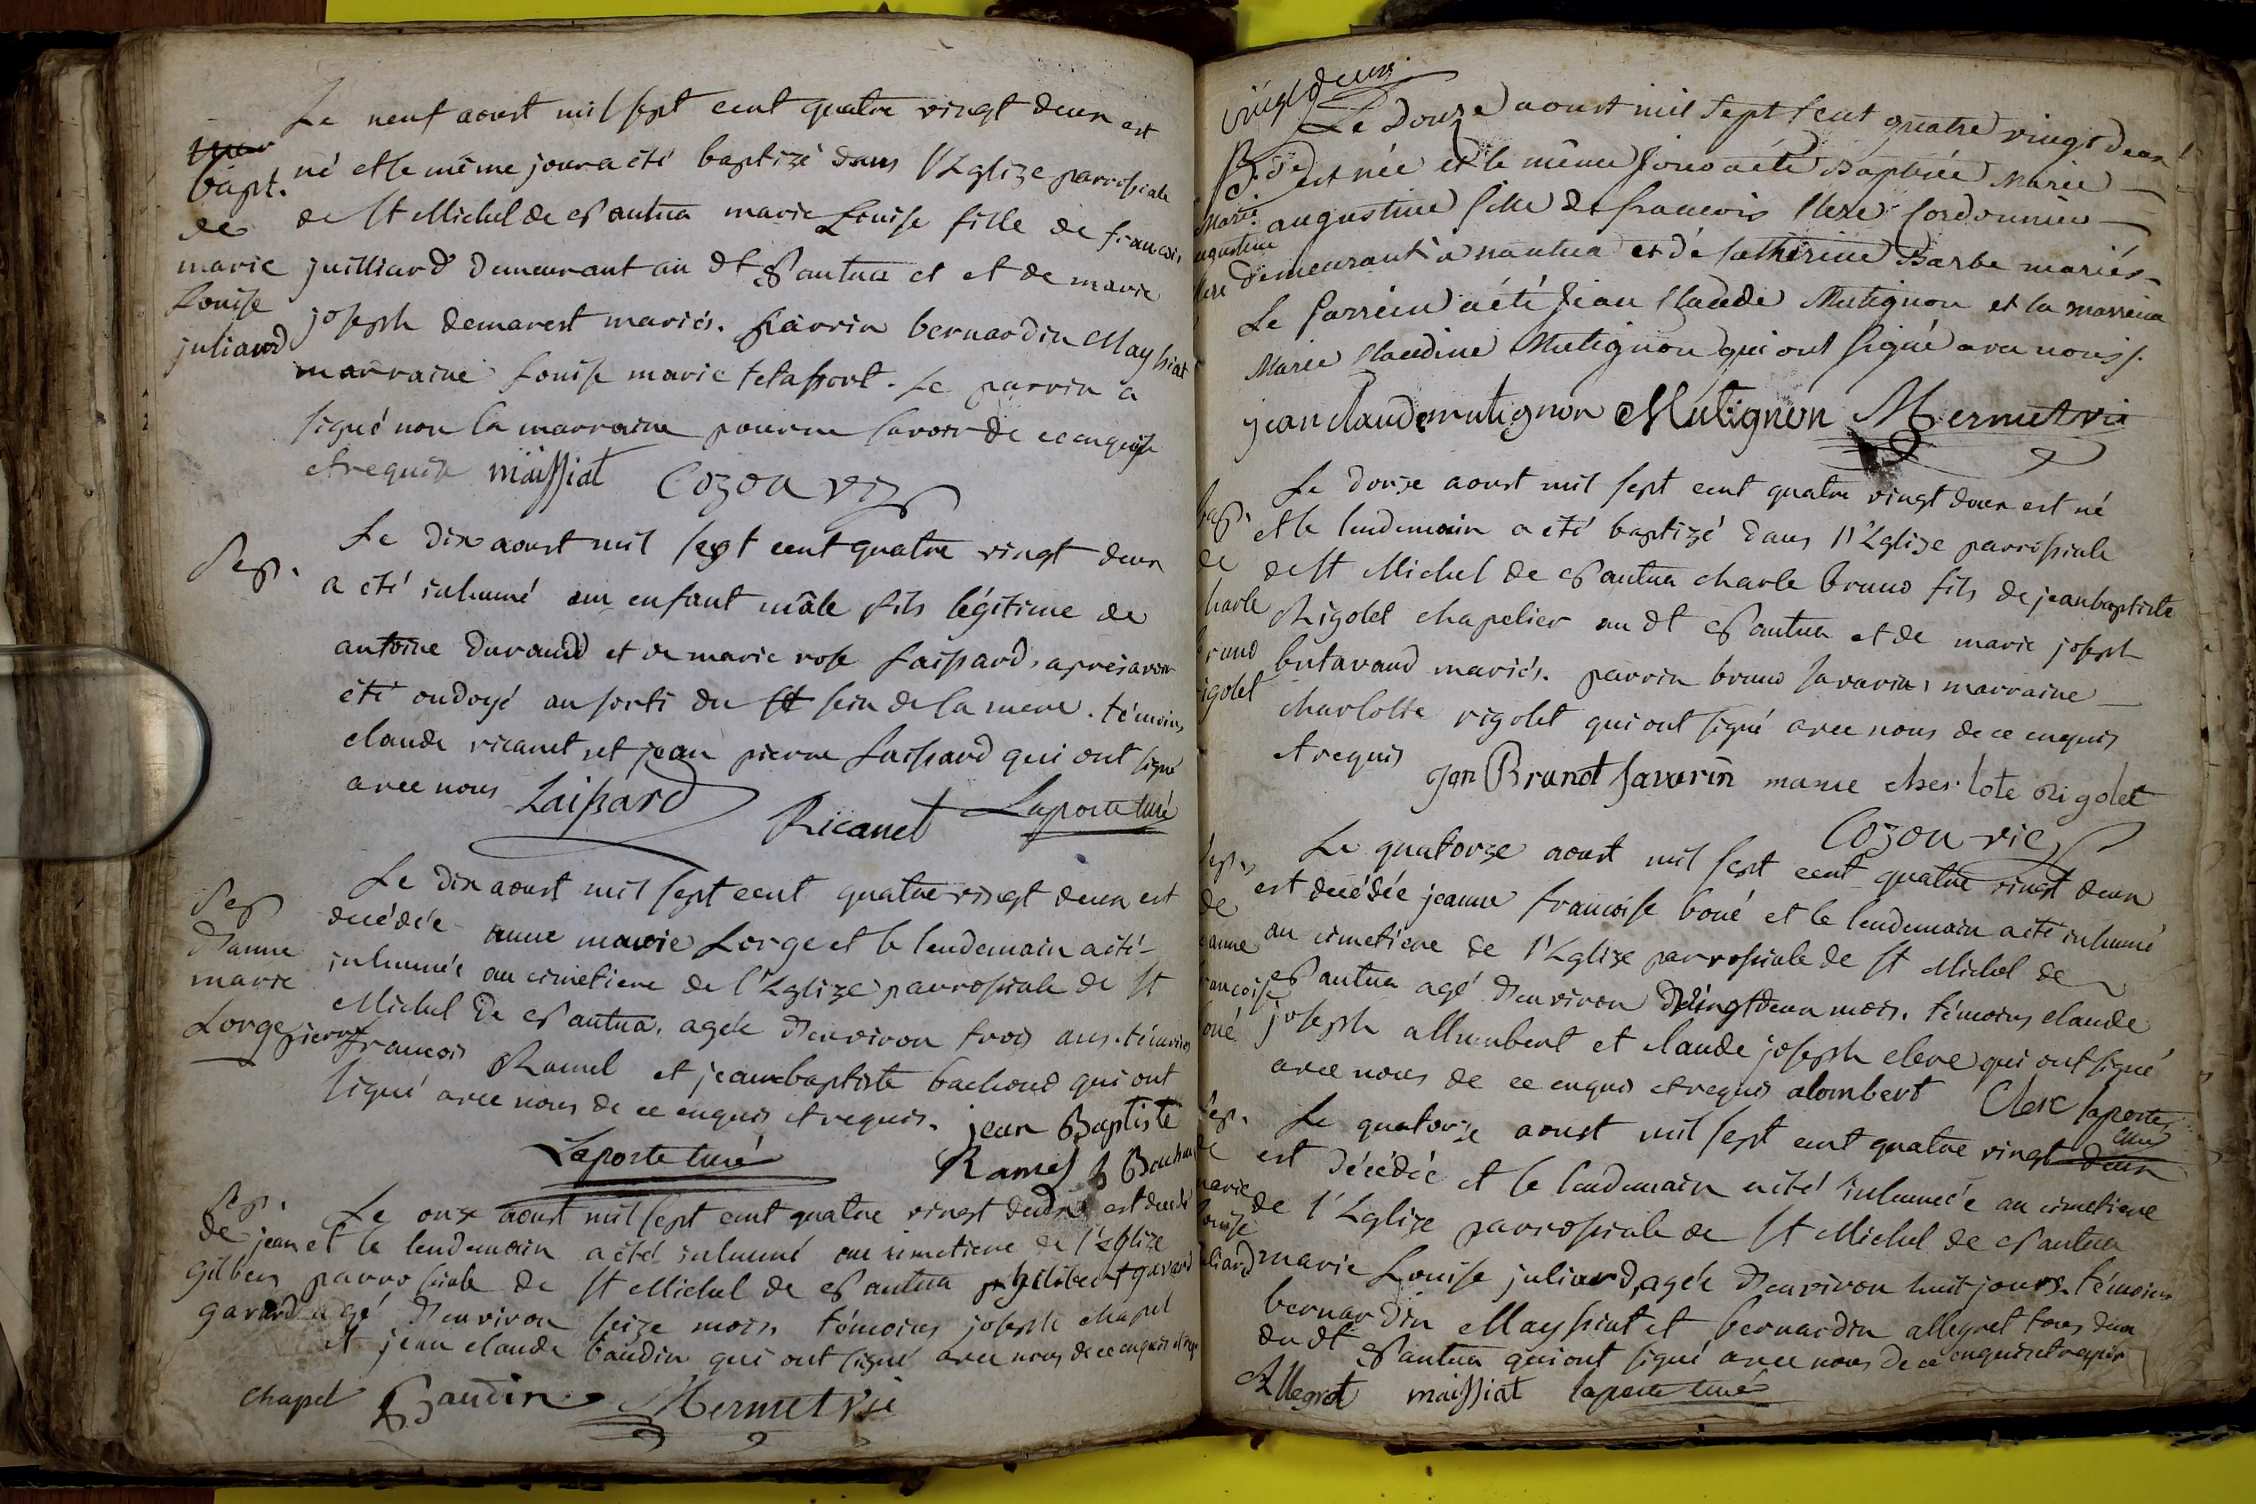 Le neuf aoust mil sept cent quatre vingt deux est
né et le même jour a été baptizé dans l'Eglize parrossiale
de St Michel de Nantua marie Louise fille de francois
juilliard demeurant au dt Nantua et et de marie
joseph demarest mariés. Parrin bernardin Mayssiat
marraine Louise marie telassort. Le parrin a
signé non la marraine pour ne savoir de ce enquise
et requise maissiat Cozon vic
bapt.
de
marie
Louise
juliard
Le dix aoust mil sept cent quatre vingt deux
a été inhumé un enfant mâle fils légitime de
antoine durand et de marie rose Laissard, apres avoir
été ondoyé au sorti du st sein de la mere. témoins
claude ricanet et jean pierre Laissard qui ont signé
avec nous Laissard Ricanet Laporte curé
Sep.
Le dix aoust mil sept cent quatre vingt deux est
decédée anne marie Lorge et le lendemain a été
inhumée au cimetiere de l'Eglize parrossiale de St
Michel de Nantua, agée d'environ trois ans. témoins
pierre francois Ramel et jean baptiste bachoud qui ont
signé avec nous de ce enquis et requis. jean Baptiste
Laporte curé Ramel Bachou
Sep
d'anne
marie
Lorge
Le onze aoust mil sept cent quatre vingt deux est decedé
et le lendemain a été inhumé au cimetiere de l'Eglize
parrossiale de St Michel de Nantua philibert gavard
agé d'environ seize mois témoins joseph chapel
et jean claude baudin qui ont signé avec nous de ce enquis et req
chapel Baudin Mermet vic
Sep.
de jean
gilber
gavard
vingt deux
Le Douze aoust mil Sept Cent quatre vingt deux
est née et le même Jour a été Baptisée Marie
augustine fille de francois Clerc Cordonnier
demeurant a nantua et de Catherine Barbe mariés
Le Parrein a été Jean Claude Mutignon et la marreine
Marie Claudine Mutignon qui ont signé avec nous.
jean claude mutignon Mutignon Mermet vic
B. de
Marie
augustine
Clerc
Le douze aoust mil sept cent quatre vingt deux est né
et le lendemain a été baptizé dans l'Eglize parrossiale
de St Michel de Nantua charle bruno fils de jean baptiste
Rigolet chapelier au dt Nantua et de marie joseph
butavand mariés. parrin bruno savarin, marraine
charlotte rigolet qui ont signé avec nous de ce enquis
et requis Jan Brunot Savarin marie cherlote Rigolet
Cozon vic
bap.
de
charle
bruno
rigolet
Le quatorze aoust mil sept cent quatre vingt deux
est decédée jeanne francoise boué et le lendemain a été inhumé
au cimetiere de l'Eglize parrossiale de St Michel de
Nantua agé d'environ vingt deux mois. témoins claude
joseph allumbert et claude joseph clerc qui ont signé
avec nous de ce enquis et requis alombert Clerc laporte
curé
Sep.
de
jeanne
francoise
boué
Le quatorze aoust mil sept cent quatre vingt deux
est décédée et le lendemain a été inhumée au cimetiere
de l'Eglize parrossiale de St Michel de Nantua
marie Louise juliard, agée d'environ huit jours. témoins
bernardin Mayssiat et bernardin allegret tous deux
du dt Nantua qui ont signé avec nous de ce enquis et requis
Allegret maissiat laporte curé
Sep.
de
marie
Louise
juliard